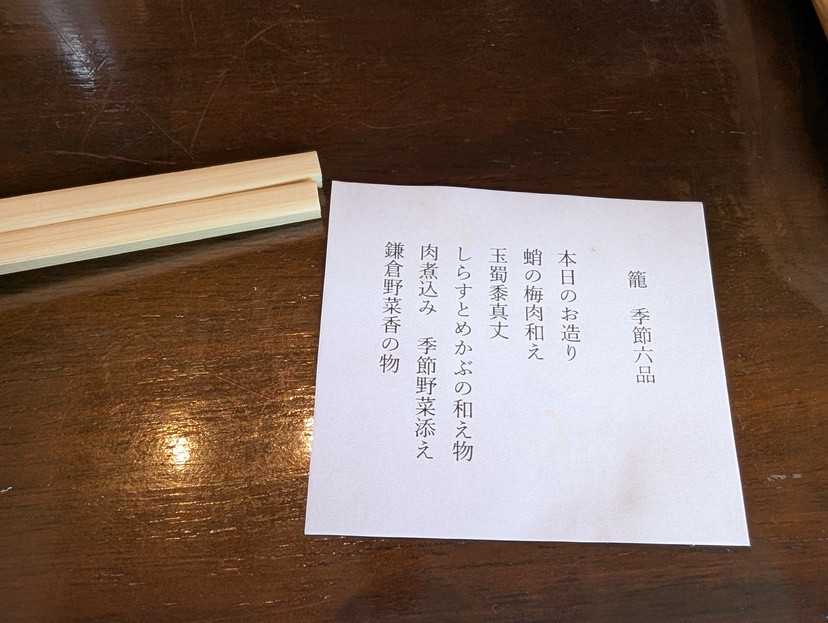 籠　季節六品
本日のお造り
蛸の梅肉和え
玉蜀黍真丈
しらすとめかぶの和え物
肉煮込み　季節野菜添え
鎌倉野菜香の物